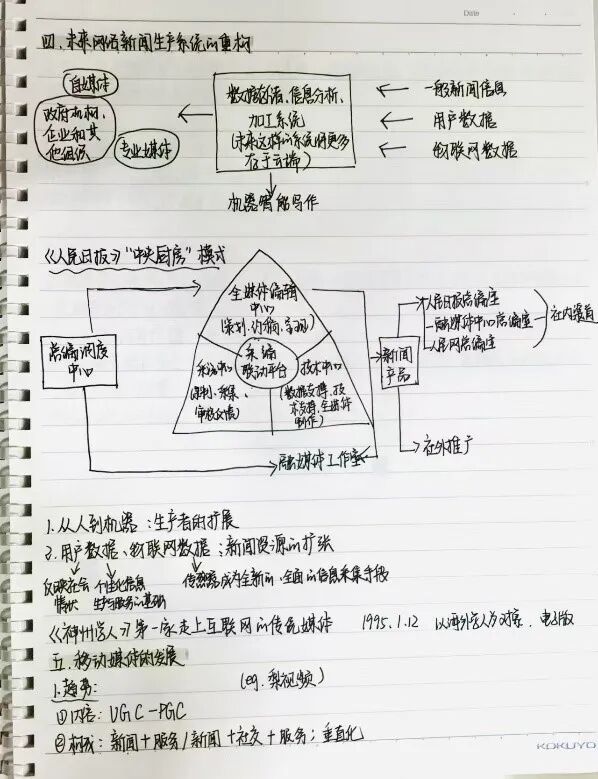 Date
四、未来网络新闻生产系统的重构
自媒体
政府机构、
企业和其
他组织
专业媒体
数据存储、信息分析、
加工系统
(未来这样的系统将更多
存于云端)
一般新闻信息
用户数据
物联网数据
机器智能写作
《人民日报》"中央厨房"模式
总编调度
中心
全媒体编辑
中心
(策划、约稿、
采编
联动平台
采访中心
采集、
技术中心
(数据支撑、技
术支撑、全媒体
制作)
融媒体工作室
新闻
产品
人民日报总编室
融媒体中心总编室
人民网总编室
社内渠道
社外推广
1.从人到机器:生产者的扩展
2.用户数据、物联网数据:新闻资源的扩张
反映社会
情状
个性化信息
生产与服务的基础
传感器成为全新的、全面的信息采集手段
《神州学人》第一家走上互联网的传统媒体 1995.1.12 以海外学人为对象,电子版
五、移动媒体的发展
1.趋势: (eg.梨视频)
①内容:UGC-PGC
②模式:新闻+服务/新闻+社交+服务;垂直化
KOKUYO